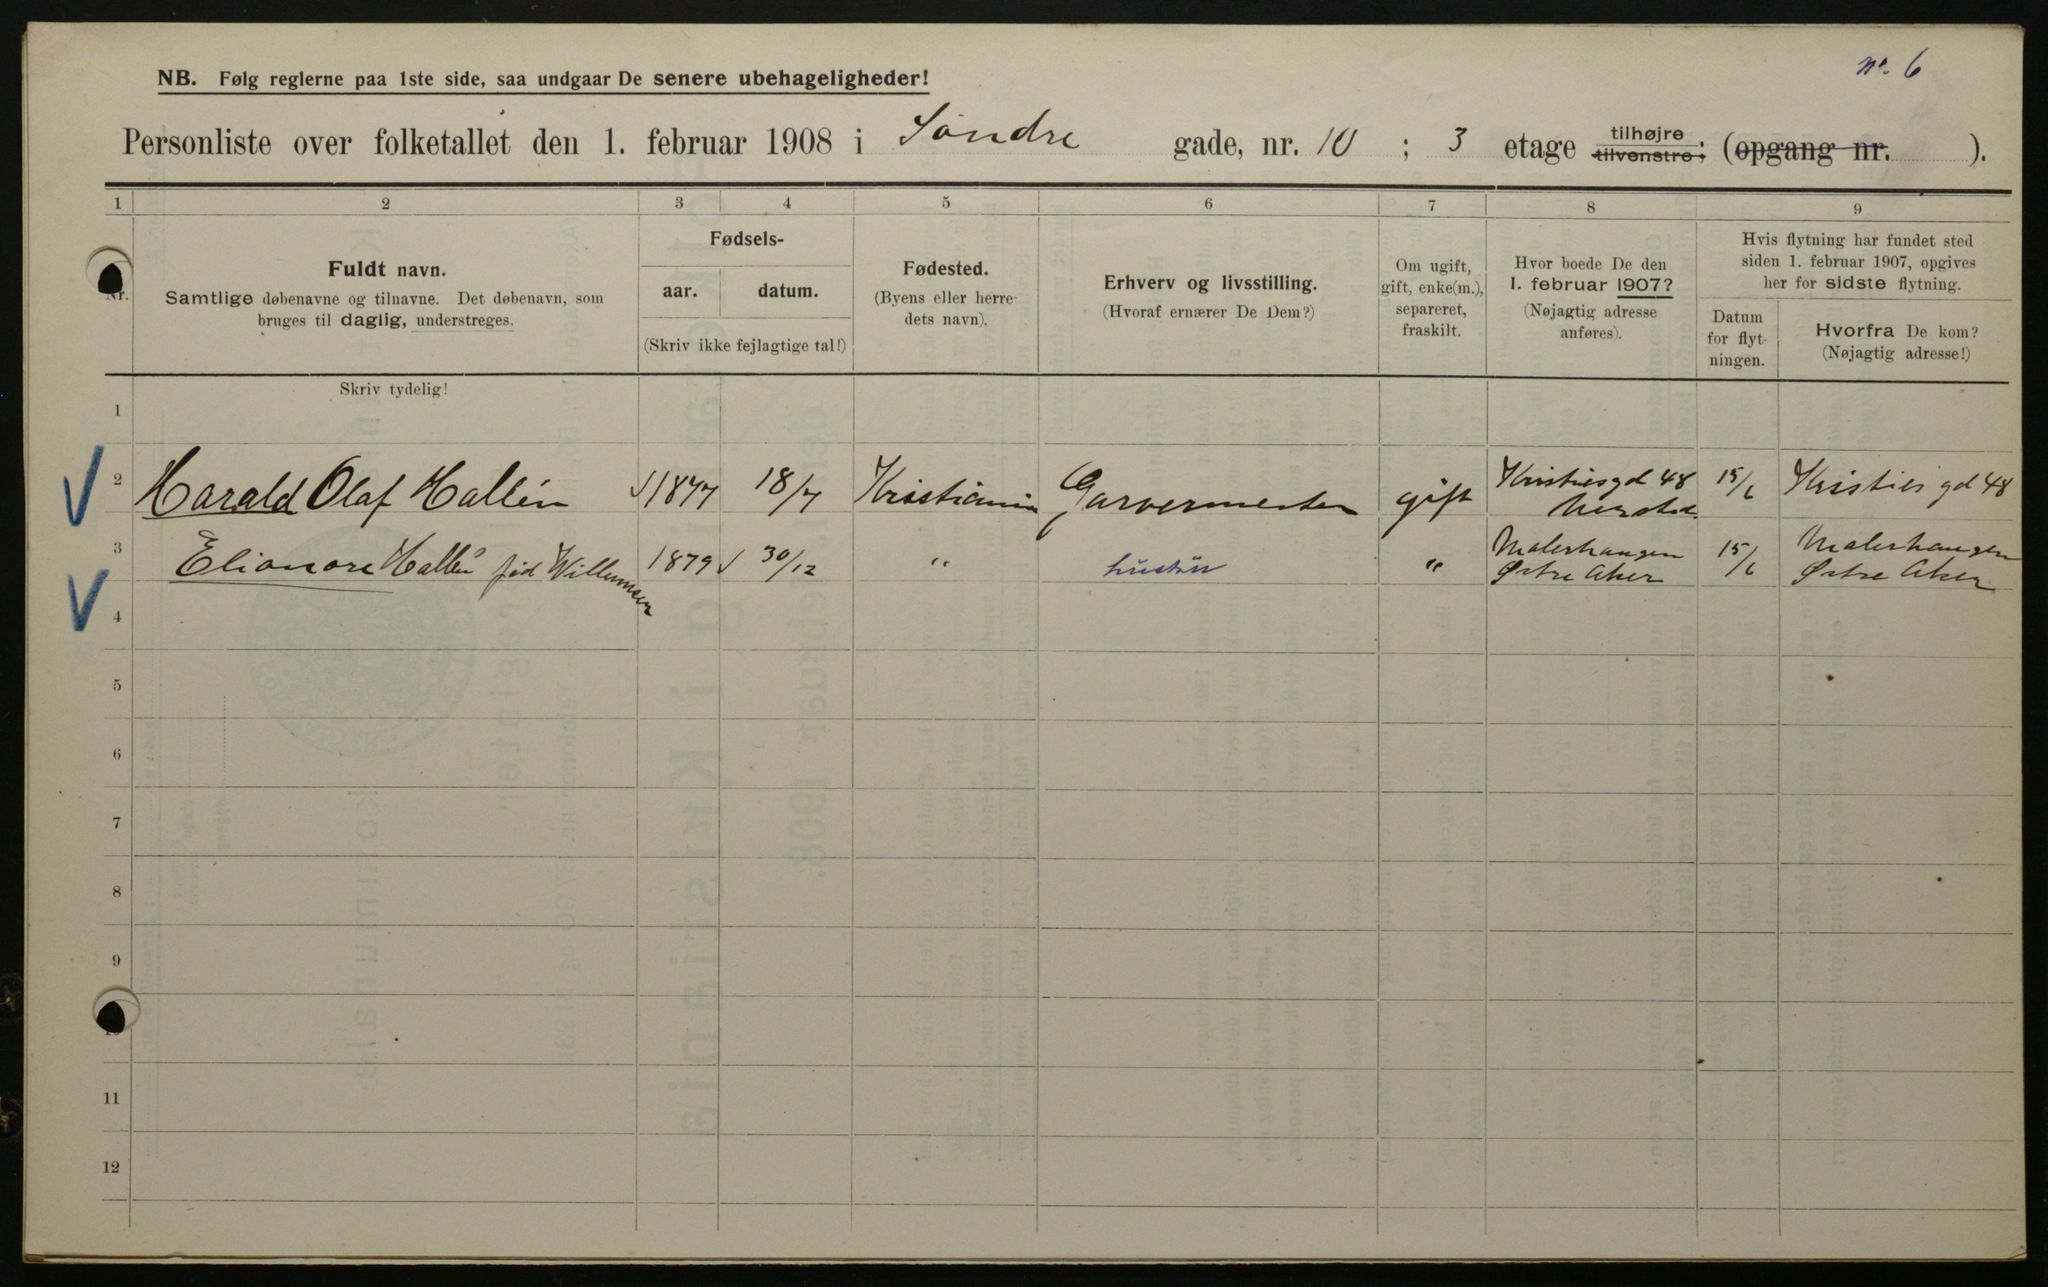 nr. 6
NB. Følg reglerne paa 1ste side, saa undgaar De senere ubehageligheder!
Personliste over folketallet den 1. februar 1908 i Søndre gade, nr. 10 ; 3 etage tilhøjre tilvenstre; (opgang nr. ).
1 2 3 4 5 6 7 8 9
Nr.
Fuldt navn.
Samtlige døbenavne og tilnavne. Det døbenavn, som
bruges til daglig, understreges.
Fødsels-
aar. datum.
(Skriv ikke fejlagtige tal!)
Fødested.
(Byens eller herre-
dets navn).
Erhverv og livsstilling.
(Hvoraf ernærer De Dem?)
Om ugift,
gift, enke(m.),
separeret,
fraskilt.
Hvor boede De den
1. februar 1907?
(Nøjagtig adresse
anføres).
Hvis flytning har fundet sted
siden 1. februar 1907, opgives
her for sidste flytning.
Datum
for flyt-
ningen.
Hvorfra De kom?
(Nøjagtig adresse!)
Skriv tydelig!
1
2 Harald Olaf Hallén 1877 18/7 Kristiania Garvermester gift Kristiesgd 48 15/6 Kristies gd 48
3 Elionore Hallén fød Willumsen 1879 30/12 " hustru " Malerhaugen Østre Aker 15/6 Malerhaugen Østre Aker
4
5
6
7
8
9
10
11
12